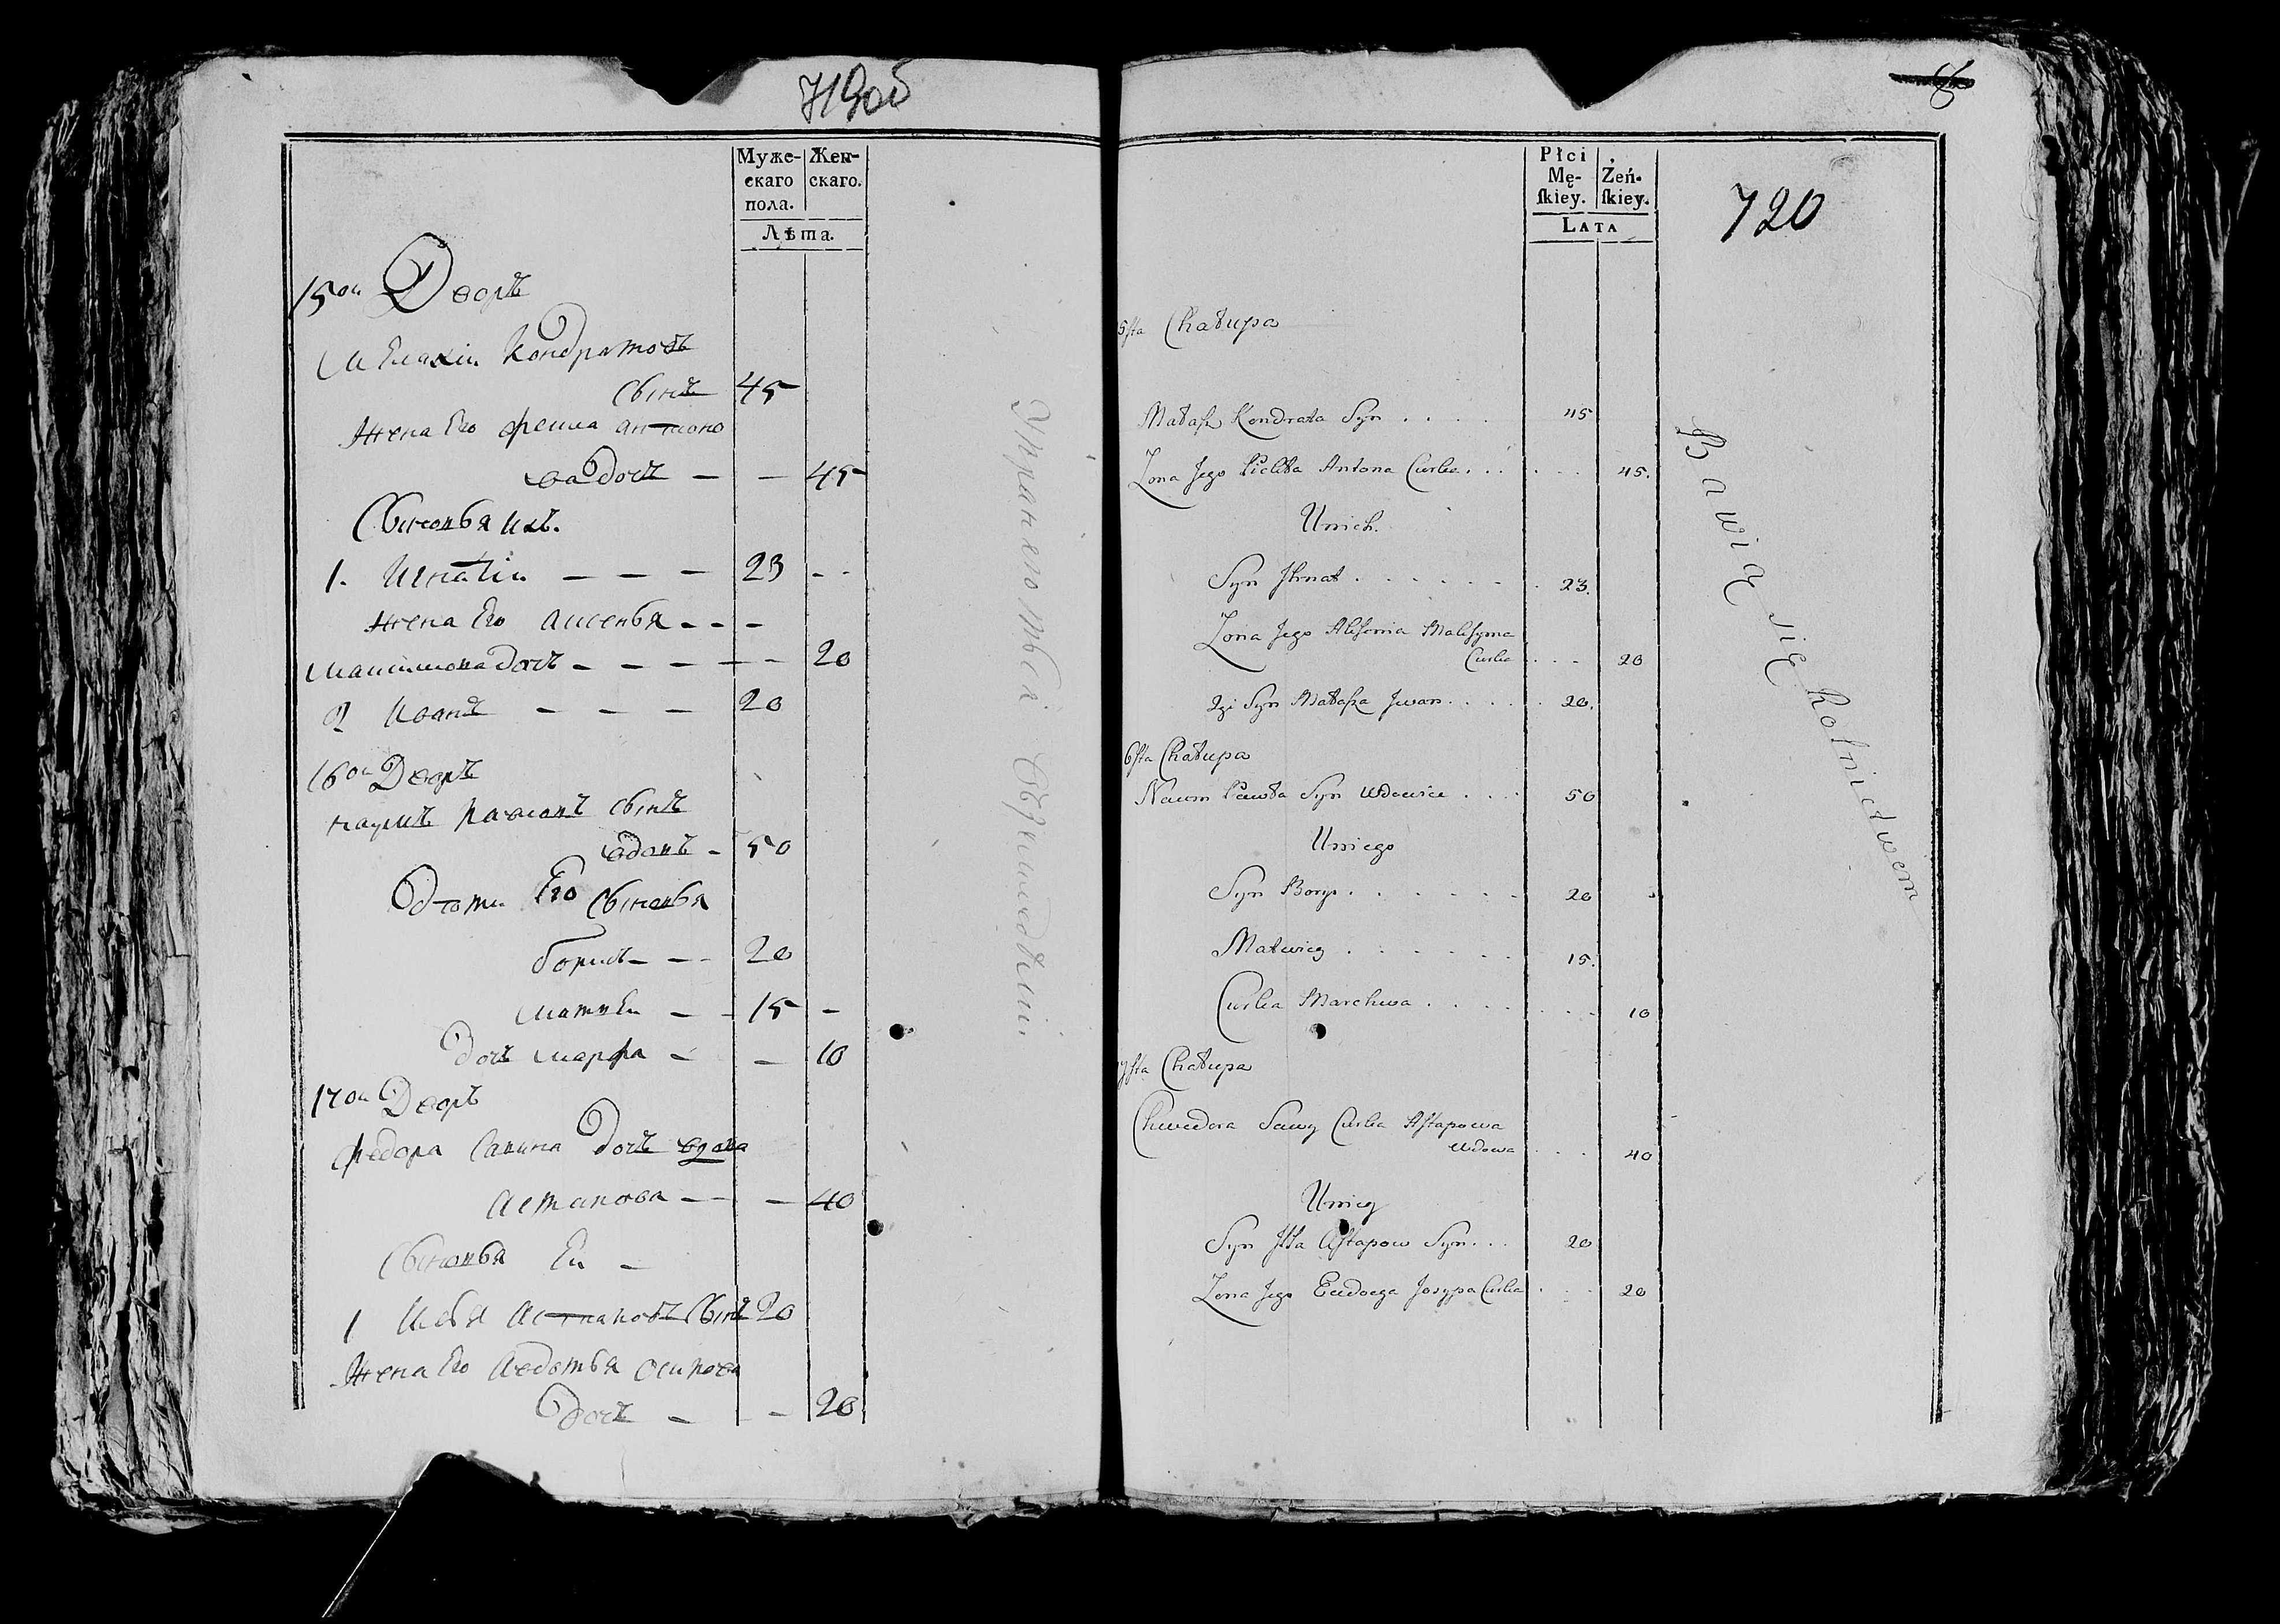 719об
Муже-
скаго
пола.
Жен-
скаго.
Лѣта.
15ой Дворъ
Малахiй Кондратовъ
сынъ 45
Жена Его Фекла Антоно
ва дочь — — 45
Сыновья ихъ.
1. Игнатiй — — — 23 - -
Жена Его Аксенья - - -
Максимова дочь - - - - - 20
2 Иванъ - - - 20
16ой Дворъ
Наумъ Павловъ сынъ
вдовъ - 50
Дѣти Его Сыновья
Борисъ - - 20
Матвѣй - - 15 -
Дочь Марфа - - 10
17ой Дворъ
Федора Савина дочь вдова
Астапова - - - 40
Сыновья Ей -
1 Илья Астаповъ Сынъ 20
Жена Его Авдотья Осипова
дочь - - - 20
Упражняются Хлѣбопашествомъ
720
Płci
Mę-
ſkiey.
Żeń-
ſkiey.
LATA
5sta Chałupa
Małaſz Kondrata Syn . . . . 45
Żona Jego Piekła Antona Curka . . . . . . 45.
Unich.
Syn Ihnat . . . . . . . 23.
Żona Jego Alesenia Maksyma
Curka . . . 20
2gi Syn Małaſza Jwan . . . . . 20.
6sta Chałupa
Naum Pawła Syn Wdowiec . . . 50
Uniego
Syn Borys . . . . . . 20
Matwiey . . . . . . 15.
Curka Marchwa . . . . . . . 10
7sta Chałupa
Chwedora Sawy Curka Astapowa
Wdowa . . . 40
Uniey
Syn Illa Astapow Syn . . . 20
Żona Jego Eudocya Josypa Curka . . . 20
Bawią się Rolnictwem